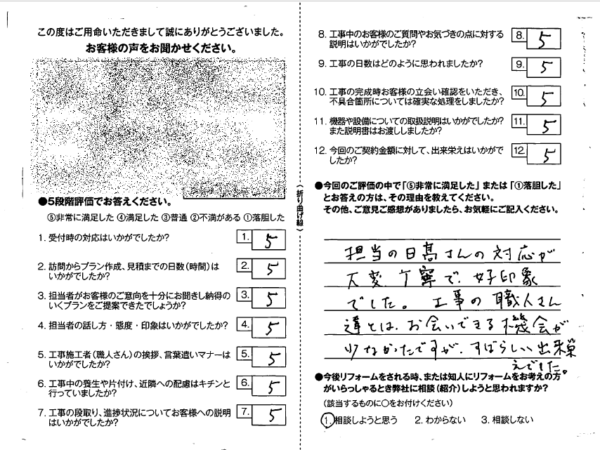 この度はご用命いただきまして誠にありがとうございました。
お客様の声をお聞かせください。
●5段階評価でお答えください。
⑤非常に満足した ④満足した ③普通 ②不満がある ①落胆した
1. 受付時の対応はいかがでしたか?
1. 5
2. 訪問からプラン作成、見積までの日数(時間)は
いかがでしたか?
2. 5
3. 担当者がお客様のご意向を十分にお聞きし納得の
いくプランをご提案できたでしょうか?
3. 5
4. 担当者の話し方・態度・印象はいかがでしたか?
4. 5
5. 工事施工者(職人さん)の挨拶、言葉遣いマナーは
いかがでしたか?
5. 5
6. 工事中の養生や片付け、近隣への配慮はキチンと
行っていましたか?
6. 5
7. 工事の段取り、進捗状況についてお客様への説明
はいかがでしたか?
7. 5
(折り曲げ線)
8. 工事中のお客様のご質問やお気づきの点に対する
説明はいかがでしたか?
8. 5
9. 工事の日数はどのように思われましたか?
9. 5
10. 工事の完成時お客様の立会い確認をいただき、
不具合箇所については確実な処理をしましたか?
10. 5
11. 機器や設備についての取扱説明はいかがでしたか?
また説明書はお渡ししましたか?
11. 5
12. 今回のご契約金額に対して、出来栄えはいかがで
したか?
12. 5
●今回のご評価の中で「⑤非常に満足した」または「①落胆した」
とお答えの方は、その理由を教えてください。
その他、ご意見ご感想がありましたら、お気軽にご記入ください。
担当の日高さんの対応が
大変丁寧で、好印象
でした。工事の職人さん
達とは、お会いできる機会が
少なかたですが、すばらしい出来栄
えでした。
●今後リフォームをされる時、または知人にリフォームをお考えの方
がいらっしゃるとき弊社に相談(紹介)しようと思われますか?
(該当するものに○をお付けください)
1. 相談しようと思う 2. わからない 3. 相談しない